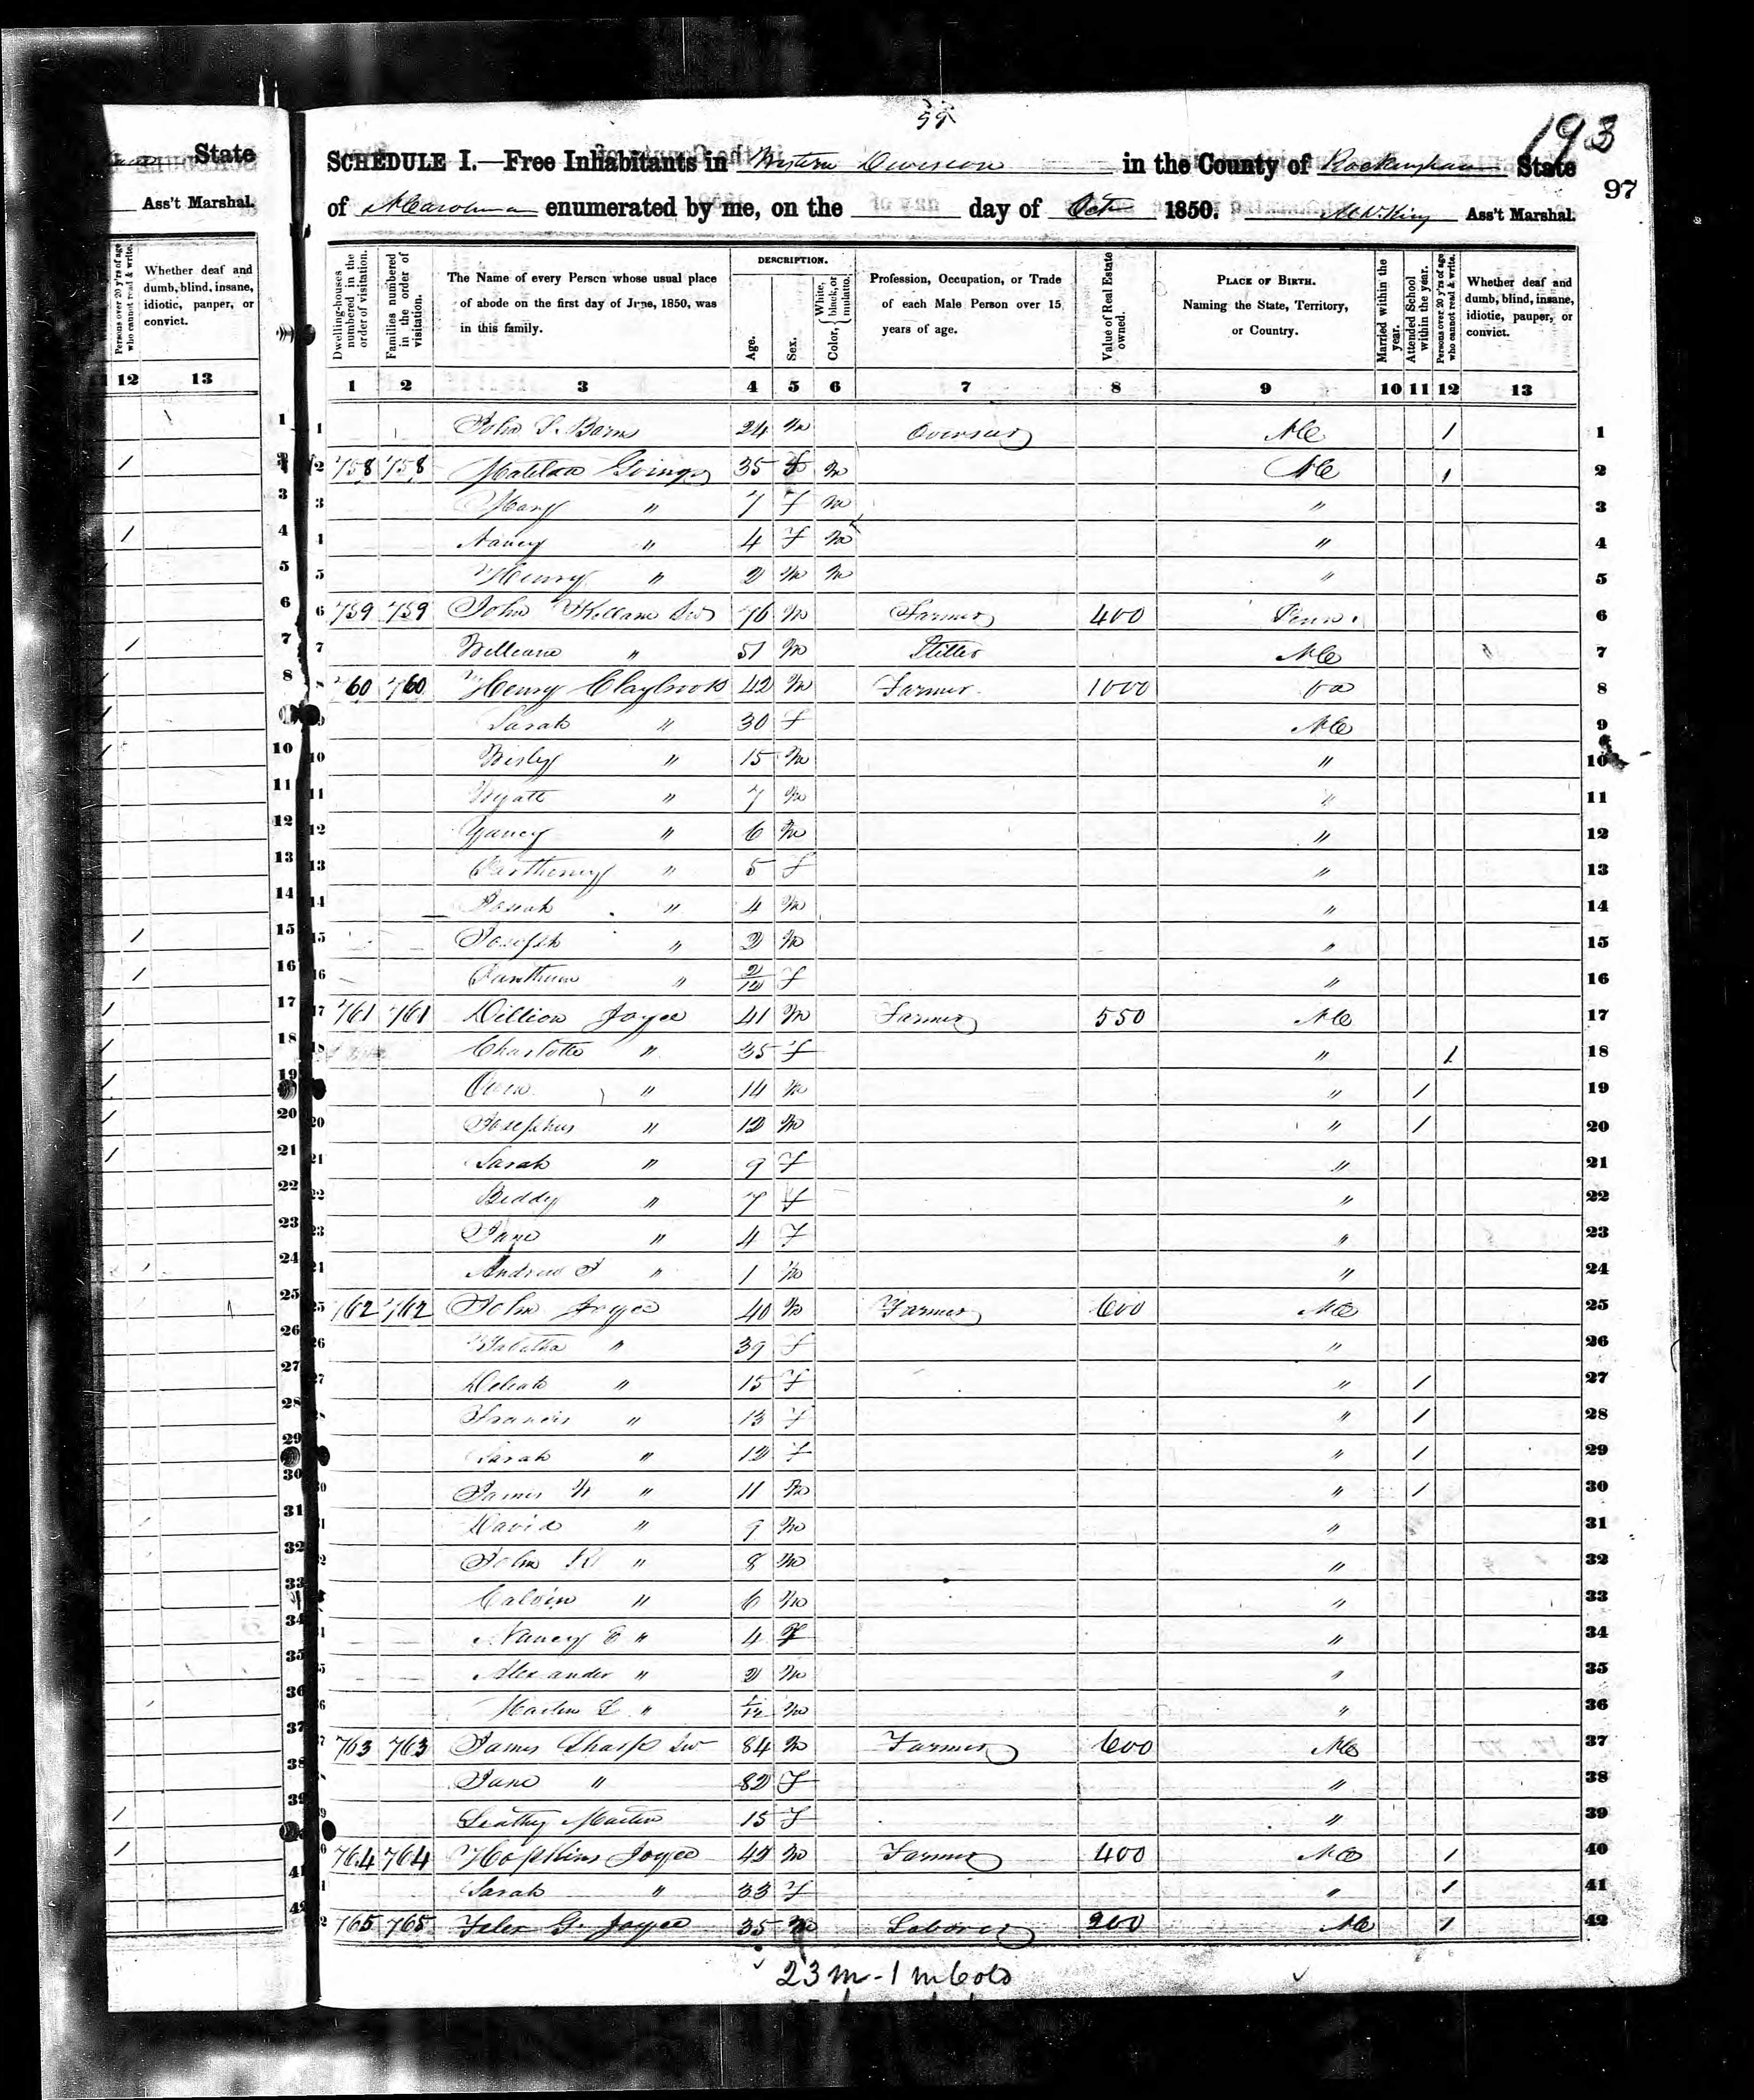 59
193
97
State
Ass't Marshal.
Persons over 20 y'rs of age who cannot read & write.
Whether deaf and dumb, blind, insane, idiotic, pauper, or convict.
12 13
SCHEDULE I.—Free Inhabitants in Western Division in the County of Rockingham State
of N Carolina enumerated by me, on the day of Oct 1850. Ass't Marshal.
Dwelling-houses numbered in the order of visitation.
Families numbered in the order of visitation.
The Name of every Person whose usual place of abode on the first day of June, 1850, was in this family.
DESCRIPTION.
Age.
Sex.
Color, { White, black, or mulatto.
Profession, Occupation, or Trade of each Male Person over 15 years of age.
Value of Real Estate owned.
PLACE OF BIRTH. Naming the State, Territory, or Country.
Married within the year.
Attended School within the year.
Persons over 20 y'rs of age who cannot read & write.
Whether deaf and dumb, blind, insane, idiotic, pauper, or convict.
1 2 3 4 5 6 7 8 9 10 11 12 13
1 John S. Barns 24 m Overseer NC 1 1
2 758 758 35 f m NC 1 2
3 Mary " 7 f m " 3
4 Nancy " 4 f m " 4
5 Henry " 2 m m " 5
6 759 759 John 76 m Farmer 400 Penn. 6
7 William " 51 m Stiller NC 7
8 760 760 Henry Claybrook 42 m Farmer 1000 Va 8
9 Sarah " 30 f NC 9
10 Wesley " 15 m " 10
11 Wyatt " 7 m " 11
12 Yancy " 6 m " 12
13 Partheny " 5 f " 13
14 Josiah " 4 m " 14
15 Joseph " 2 m " 15
16 " 2/12 f " 16
17 761 761 Dillion Joyce 41 m Farmer 550 NC 17
18 Charlotte " 35 f " 1 18
19 " 14 m " 1 19
20 Josephus " 12 m " 1 20
21 Sarah " 9 f " 21
22 Biddy " 7 f " 22
23 Jane " 4 f " 23
24 Andrew J " 1 m " 24
25 762 762 John Joyce 40 m Farmer 600 NC 25
26 Tabitha " 39 f " 26
27 Deliah " 15 f " 1 27
28 Francis " 13 f " 1 28
29 Sarah " 12 f " 1 29
30 James W " 11 m " 1 30
31 David " 9 m " 31
32 John R " 8 m " 32
33 Calvin " 6 m " 33
34 Nancy E " 4 f " 34
35 Alexander " 2 m " 35
36 Martin L " 1/12 m " 36
37 763 763 James Sharp Sr 84 m Farmer 600 NC 37
38 Jane " 82 f " 38
39 Leathy Martin 15 f " 39
40 764 764 Hopkins Joyce 42 m Farmer 400 NC 1 40
41 Sarah " 33 f " 1 41
42 765 765 G. Joyce 35 m Laborer 200 NC 1 42
23 m - 1 m Cold